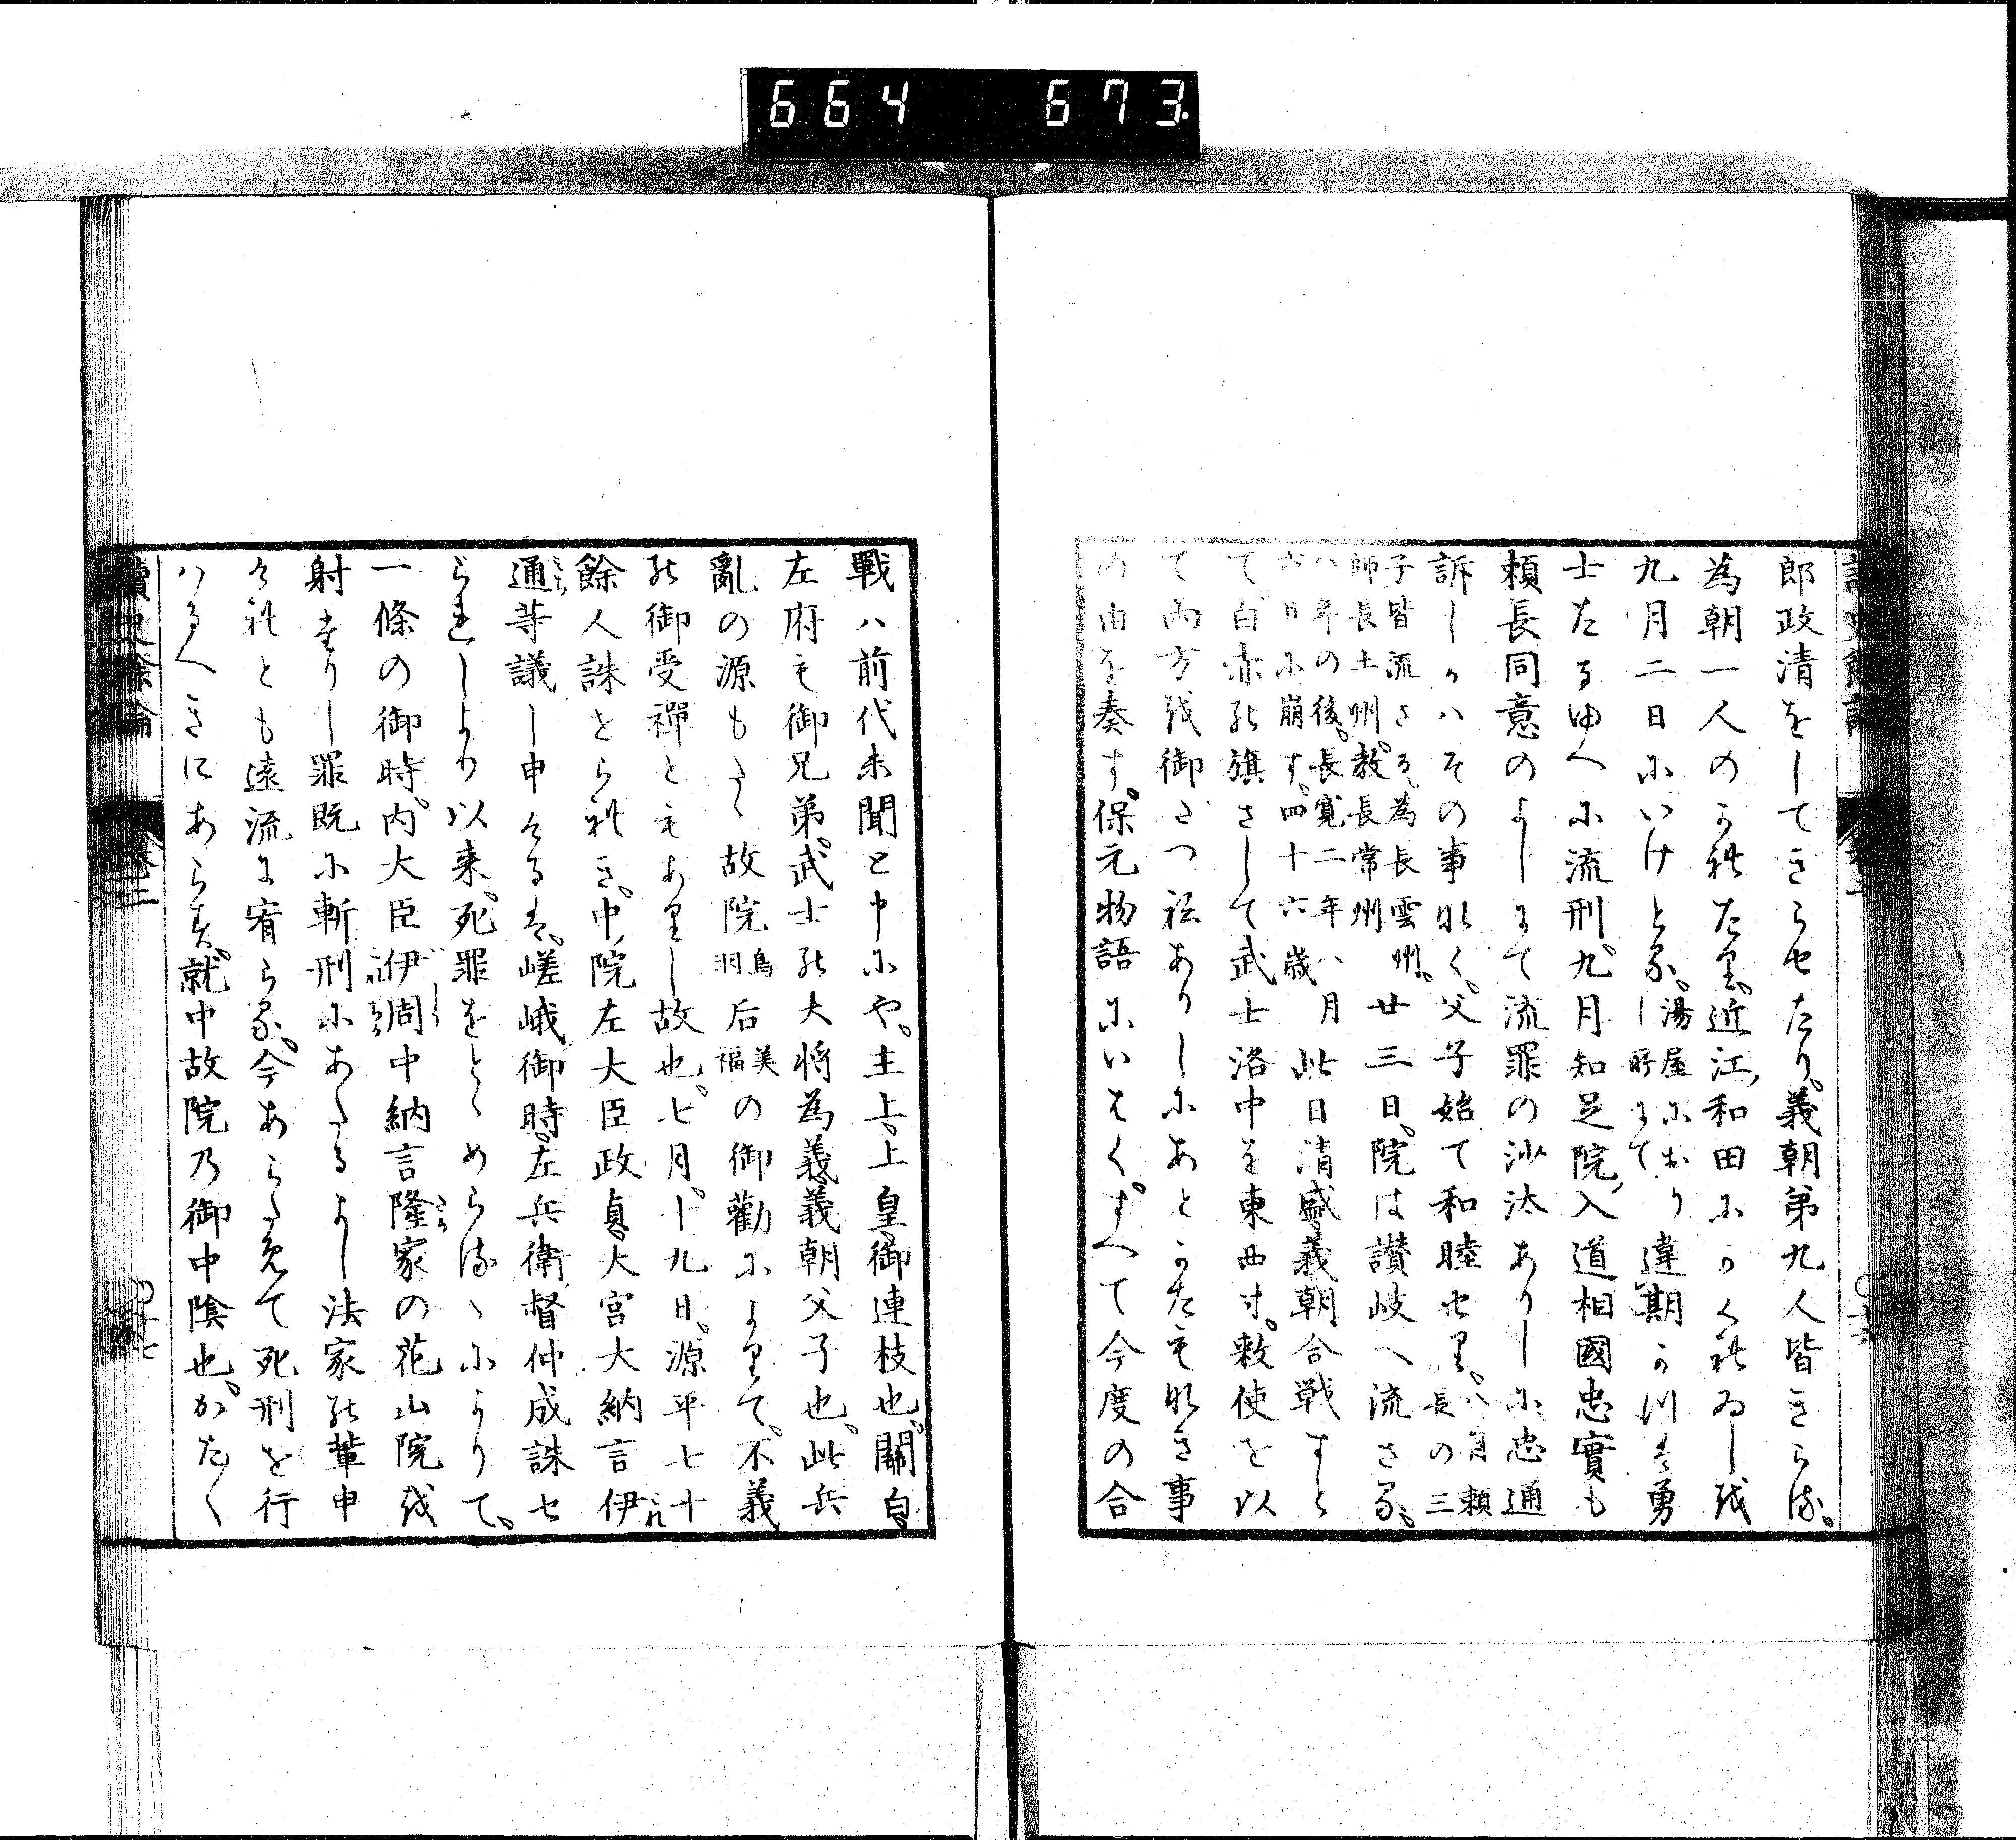 664 673
郎政清をしてきらせたり。義朝弟九人皆きらる。
為朝一人のかれたり。近江、和田にかくれゐしを
九月二日にいけとる。湯屋におりし所にて違期かつは勇
士たるゆへに流刑。九月知足院入道相國忠實も
頼長同意のよしにて流罪の沙汰ありしに忠通
訴しかハその事なく。父子始て和睦せり。八月頼長の三
子皆流さる、為長雲州。師長土州。教長常州 廿三日。院は讃岐へ流さる。
八年の後。長寛二年八月
六日に崩す、四十六歳 此日清盛、義朝合戦すと
て、白赤の旗さして武士洛中を東西す。敕使を以
て両方を御さつ祢ありしにあとかたもなき事
の由を奏す。保元物語にいはく。すへて今度の合
戰ハ前代未聞と申にや。主上、上皇、御連枝也。關白、
左府も御兄弟。武士の大将為義、義朝父子也。此兵
亂の源もたゝ故院鳥羽后美福の御勸によりて、不義
の御受禪ともありし故也。七月。十九日、源平七十
餘人誅せられき。中院左大臣政真、大宮大納言伊
通等議し申けるは、嵯峨御時、左兵衛督仲成誅せ
られしより以来、死罪をとゝめらるゝによりて。
一條の御時、内大臣伊周中納言隆家の花山院を
射奉りし罪既に斬刑にあたるよし法家の輩申
けれとも遠流に宥らる。今あらためて死刑を行
ハるへきにあらす。就中故院乃御中陰也。かたく
讀史餘論 卷二